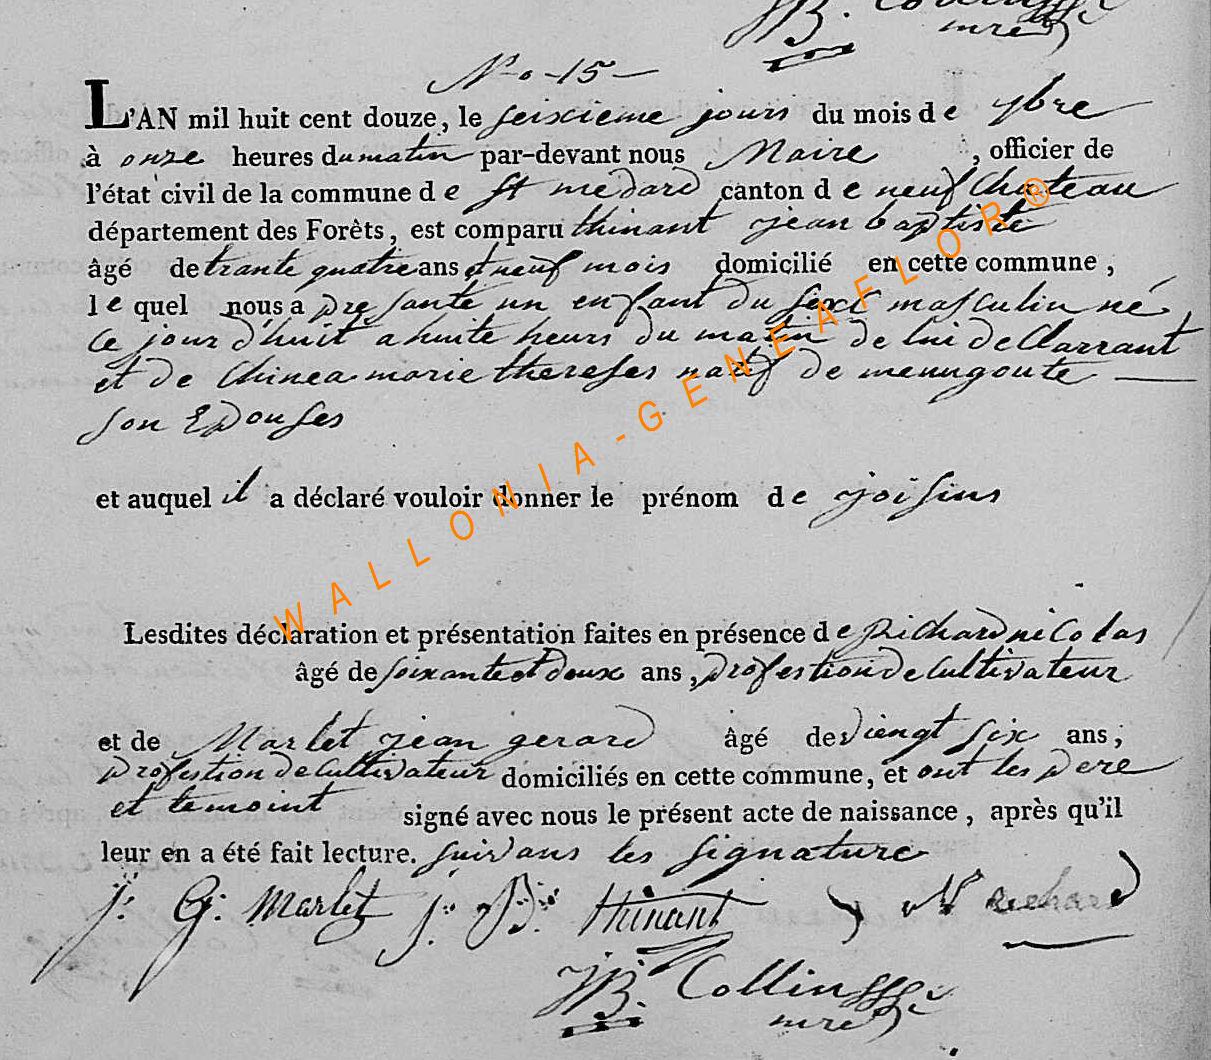 JB. Collinsse
mre
No 15
L'AN mil huit cent douze, le seixieme jours du mois de 7bre
à onze heures du matin par-devant nous Maire , officier de
l'état civil de la commune de St medard canton de neufChateau
département des Forêts, est comparu thinant jean baptiste
âgé de trante quatre ans et neuf mois domicilié en cette commune,
le quel nous a presante un enfant du sexe masculin né
Ce jour d'huit a huite heurs du matin de lui de Clarrant
et de Chinea marie thereses natif de menugoute
son Epouses
et auquel il a déclaré vouloir donner le prénom de
Lesdites déclaration et présentation faites en présence de Richard nicolas
âgé de soixante et deux ans, profestion de Cultivateur
et de Marlet jean gerard âgé de viengt six ans,
profestion de Cultivateur domiciliés en cette commune, et ont les pere
et temoint signé avec nous le présent acte de naissance, après qu'il
leur en a été fait lecture. suivans les signature
j: G: Marlet j: B: Thinant N richard
JB. Collinsse
mre
WALLONIA-GENEAFLOR®